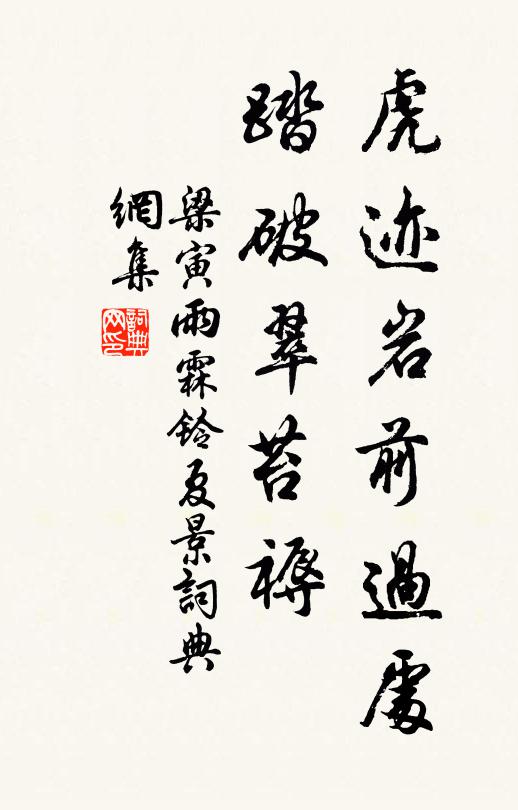 虎迹岩前過處
踏破翠苔褥
梁寅雨霖鈴夏景詞典
網集
詞典
网印